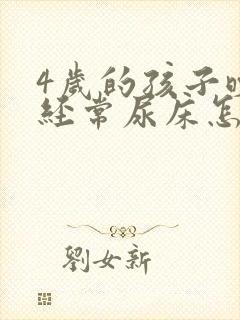 4歲的孩子
经常尿床怎
劉女新